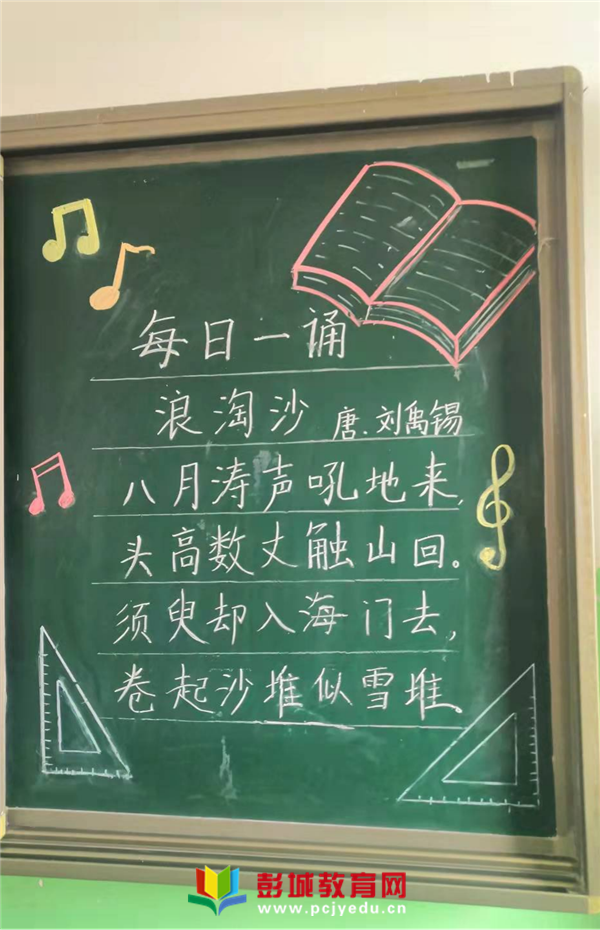 每日一诵
浪淘沙 唐.刘禹锡
八月涛声吼地来,
头高数丈触山回。
须臾却入海门去,
卷起沙堆似雪堆。
彭城教育网
www.pcjyedu.cn